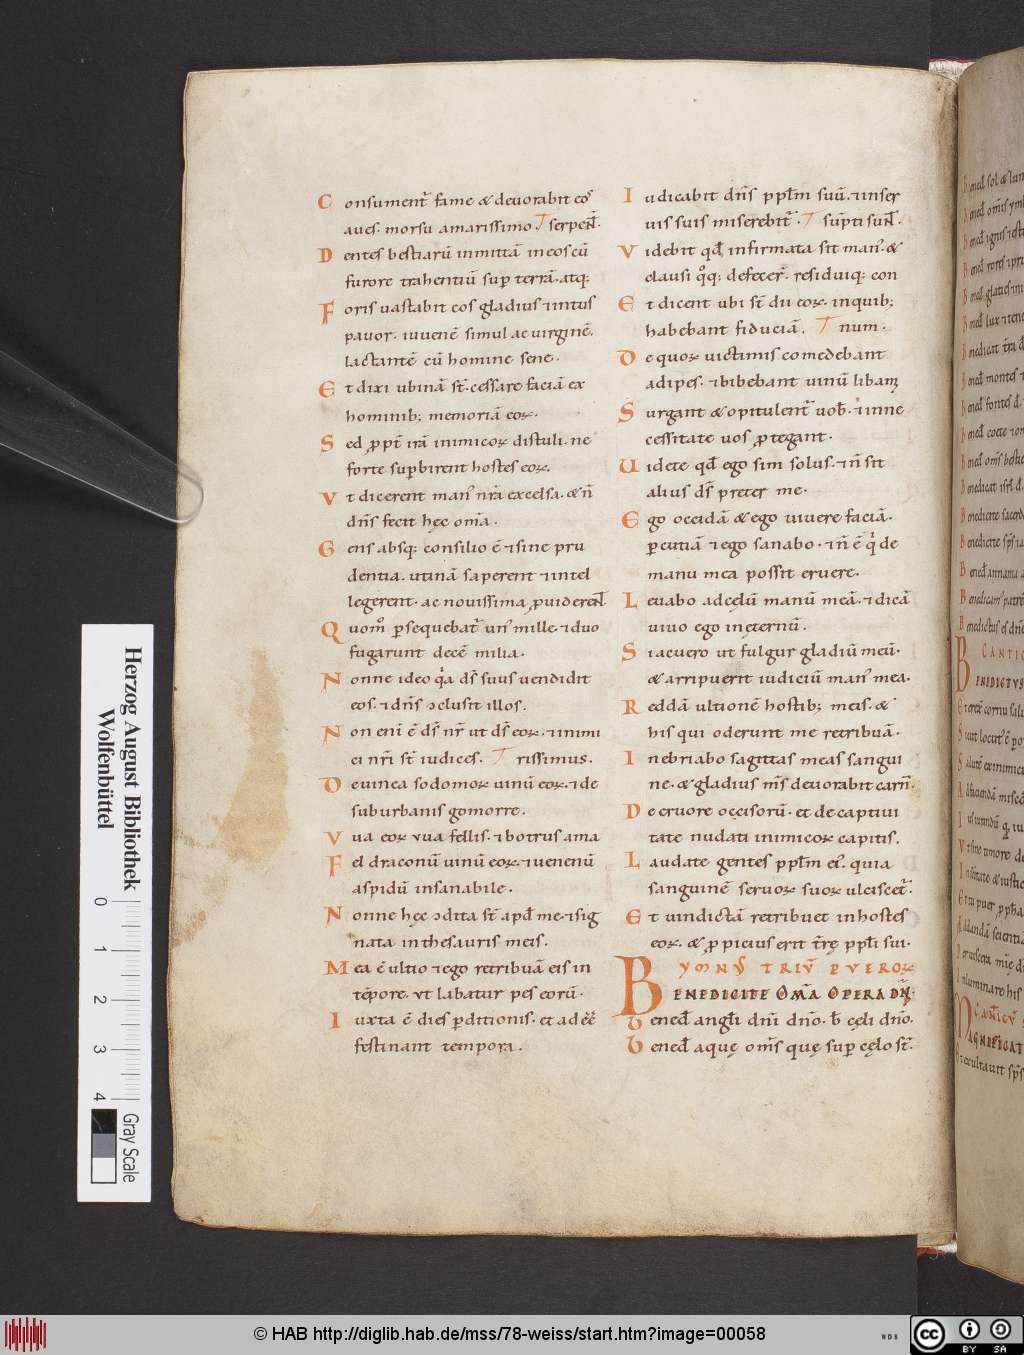 Consument᷑ fame & deuorabit eos
aues. morsu amarissimo. serpen̄.
Dentes bestiarū inmittā in eos cū
furore trahentiū sup̄ terrā. atq;
Foris uastabit eos gladius. ⁊intus
pauor. iuuenē simul ac uirginē.
lactantē cū homine sene.
Et dixi ubinā st̄. cessare faciā ex
hominib; memoriā eoꝝ.
Sed ꝓpt̄ irā inimicoꝝ distuli. ne
forte sup̄birent hostes eoꝝ.
Vt dicerent man᷒ nr̄a excelsa. & n̄
dn̄s fecit hęc om̄a.
Gens absq; consilio ē ⁊sine pru
dentia. utinā saperent ⁊intel
legerent. ac nouissima ꝓuideren̄.
Quom̊ ꝑsequebat᷑ un᷒ mille. ⁊duo
fugarunt decē milia.
Nonne ideo qͥa ds̄ suus uendidit
eos. ⁊dn̄s ɔclusit illos.
Non eni ē ds̄ nr̄ ut ds̄ eoꝝ. ⁊inimi
ci nr̄i st̄ iudices. rissimus.
De uinea sodomoꝝ uinū eoꝝ. ⁊de
suburbanis gomorre.
Vua eoꝝ vua fellis. ⁊botrus ama
Fel draconū uinū eoꝝ. ⁊uenenū
aspidū insanabile.
Nonne hęc ɔdita st̄ apd̄ me. ⁊sig
nata in thesauris meis.
Mea ē ultio ⁊ego retribuā eis in
tēpore. vt labatur pes eorū.
Iuxta ē dies ꝑditionis. et adēē
festinant tempora.
Iudicabit dn̄s ppl̄m suū. ⁊inser
uis suis miserebit᷑. sūpti sun̄.
Videbit qd̄ infirmata sit man᷒. &
clausi qͦq; defecer̄. residuiq; con
Et dicent ubi st̄ dii eoꝝ. inquib;
habebant fiduciā. num.
De quoꝝ uictimis comedebant
adipes. ⁊bibebant uinū libam
Surgant & opitulent᷑ uob̄. ⁊inne
cessitate uos ꝓtegant.
Uidete qd̄ ego sim solus. ⁊n̄ sit
alius ds̄ preter me.
Ego occidā & ego uiuere faciā.
ꝑcutiā ⁊ego sanabo. ⁊n̄ ē qͥ de
manu mea possit eruere.
Leuabo adcęlū manū meā. ⁊dicā
uiuo ego inęternū.
Siacuero ut fulgur gladiū meū.
& arripuerit iudiciū man᷒ mea.
Reddā ultionē hostib; meis. &
his qui oderunt me retribuā.
Inebriabo sagittas meas sangui
ne. & gladius ms̄ deuorabit carn̄.
De cruore occisorū. et de captiui
tate nudati inimicoꝝ capitis.
Laudate gentes ppl̄m ei᷒. quia
sanguinē seruoꝝ suoꝝ ulciscet᷑.
Et uindictā retribuet in hostes
eoꝝ. & ꝓpicius erit t̄rę ppl̄i sui.
YMNVS TRIV̄ PVEROꝝ
BENEDICITE OM̄A OPERA DN̄I.
Bened̄ angl̄i dn̄i dn̄o. b̄ cęli dn̄o.
Bened̄ aquę om̄s quę sup̄ cęlo st̄.
Herzog August Bibliothek
Wolfenbüttel
0 1 2 3 4
Gray Scale
© HAB http://diglib.hab.de/mss/78-weiss/start.htm?image=00058
WDB
cc BY SA